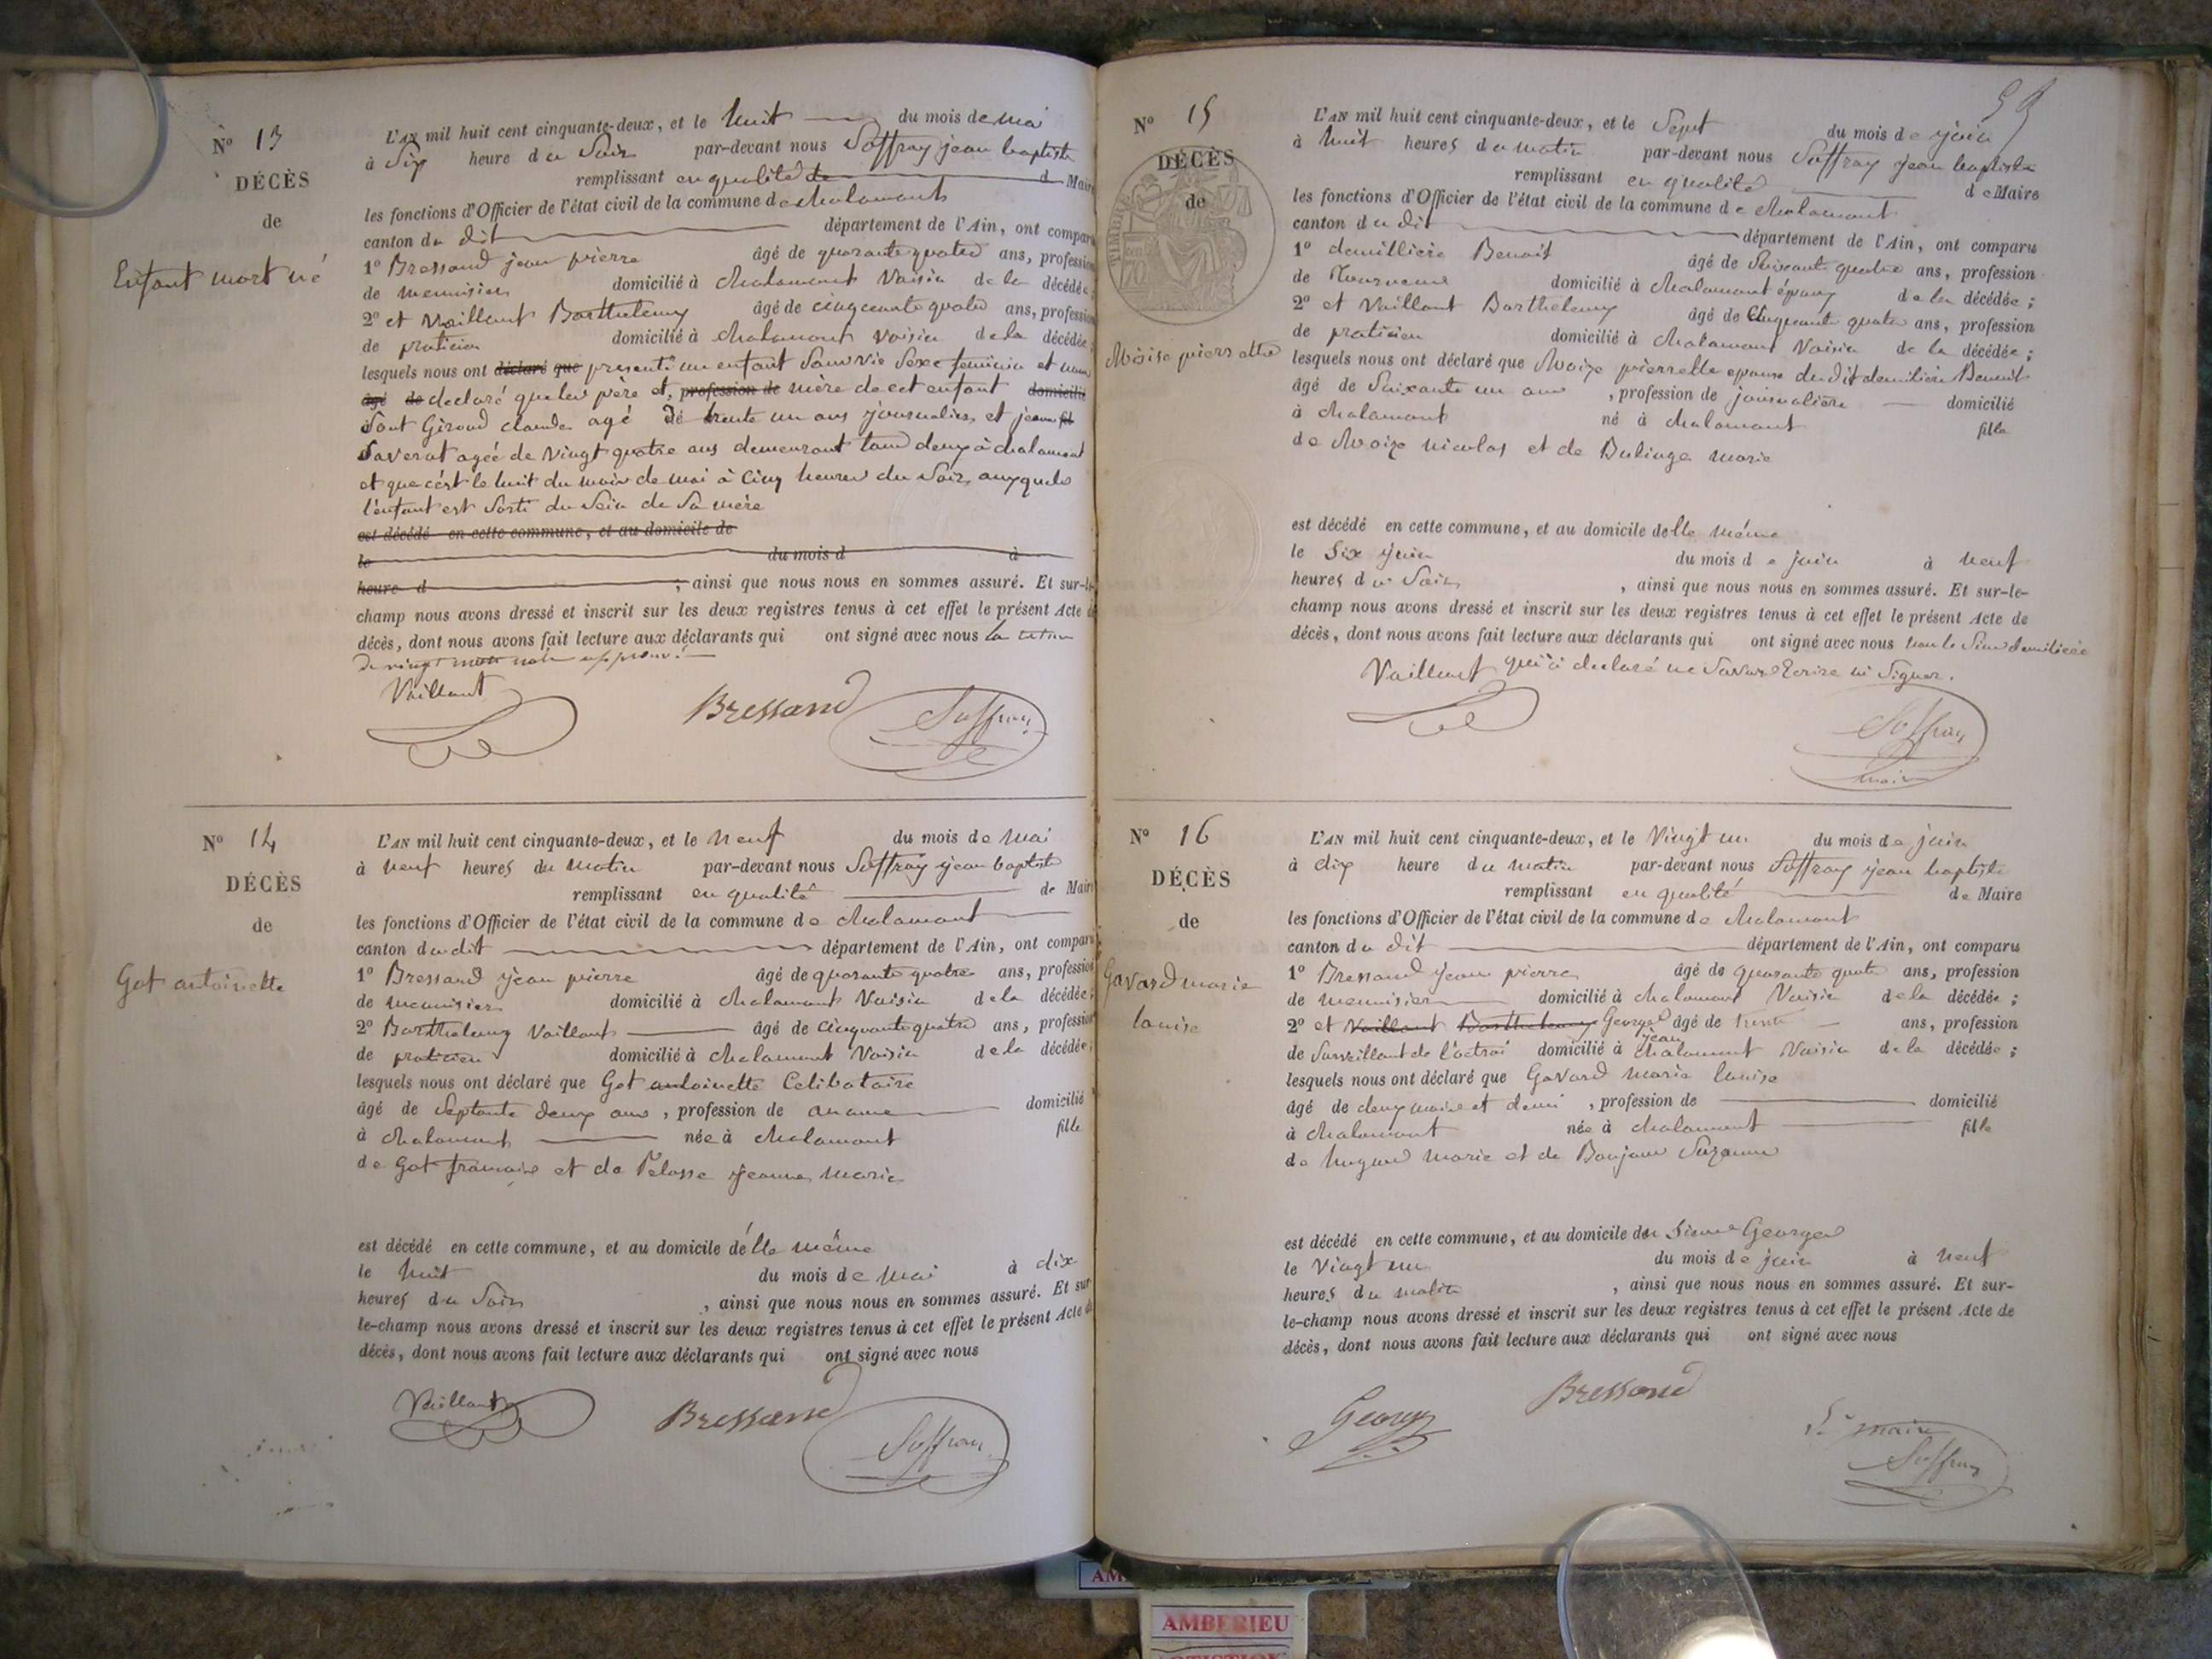 Nº 13
DÉCÈS
de
Enfant mort né
L'AN mil huit cent cinquante-deux, et le huit du mois de mai
à Six heure du Soir par-devant nous Soffray jean baptiste
remplissant en qualité de Maire
les fonctions d'Officier de l'état civil de la commune de chalamont
canton du dit département de l'Ain, ont comparu
1º Bressand jean pierre âgé de quarante quatre ans, profession
de menuisier domicilié à chalamont Voisin de la décédée;
2º et Vaillant Barthelemy âgé de cinquante quatre ans, profession
de praticien domicilié à chalamont Voisin de la décédée;
lesquels nous ont déclaré que presenté un enfant Sans vie Sexe feminin et nous
âgé de declaré que les père et, profession de mère de cet enfant domicilié
Sont Giroud claude agé de trente un ans journalier, et jeanne
Saverat agée de Vingt quatre ans demeurant tous deux à chalamont
et que c'est le huit du mois de mai à Cinq heures du Soir, auxquels
l'enfant est Sorti du Sein de Sa mère
est décédé en cette commune, et au domicile de
le du mois d à
heure d ; ainsi que nous nous en sommes assuré. Et sur-le-
champ nous avons dressé et inscrit sur les deux registres tenus à cet effet le présent Acte de
décès, dont nous avons fait lecture aux déclarants qui ont signé avec nous la
de vingt mots nuls approuvé
Vaillant Bressand Soffray
Nº 14
DÉCÈS
de
Got antoinette
L'AN mil huit cent cinquante-deux, et le neuf du mois de mai
à neuf heures du matin par-devant nous Soffray jean baptiste
remplissant en qualité de Maire
les fonctions d'Officier de l'état civil de la commune de chalamont
canton du dit département de l'Ain, ont comparu
1º Bressand jean pierre âgé de quarante quatre ans, profession
de menuisier domicilié à chalamont Voisin de la décédée;
2º Barthelemy Vaillant âgé de cinquante quatre ans, profession
de praticien domicilié à chalamont Voisin de la décédée;
lesquels nous ont déclaré que Got antoinette Celibataire
âgé de Septante deux ans, profession de aucune domicilié
à chalamont née à chalamont fille
de Got francois et de Pelosse jeanne marie
est décédé en cette commune, et au domicile d'elle même
le huit du mois de mai à dix
heures du Soir, ainsi que nous nous en sommes assuré. Et sur-
le-champ nous avons dressé et inscrit sur les deux registres tenus à cet effet le présent Acte de
décès, dont nous avons fait lecture aux déclarants qui ont signé avec nous
Vaillant Bressand Soffray
Nº 15
DÉCÈS
de
TIMBRE
70
Moise pierrette
L'AN mil huit cent cinquante-deux, et le Sept du mois de juin
à huit heures du matin par-devant nous Soffray jean baptiste
remplissant en qualité de Maire
les fonctions d'Officier de l'état civil de la commune de chalamont
canton du dit département de l'Ain, ont comparu
1º demilliere Benoit âgé de Soixante quatre ans, profession
de domicilié à chalamont époux de la décédée;
2º et Vaillant Barthelemy âgé de Cinquante quatre ans, profession
de praticien domicilié à chalamont Voisin de la décédée;
lesquels nous ont déclaré que Moize pierrette epouse du dit demiliere Benoit
âgé de Soixante un ans, profession de journalière domicilié
à chalamont né à chalamont fille
de Moize nicolas et de Bulinge marie
est décédé en cette commune, et au domicile delle même
le Six juin du mois de juin à neuf
heures du Soir, ainsi que nous nous en sommes assuré. Et sur-le-
champ nous avons dressé et inscrit sur les deux registres tenus à cet effet le présent Acte de
décès, dont nous avons fait lecture aux déclarants qui ont signé avec nous non le Sieur demiliere
qui a declaré ne Savoir Ecrire ni Signer.
Vaillant
Soffray
maire
Nº 16
DÉCÈS
de
Gavard marie
louise
L'AN mil huit cent cinquante-deux, et le Vingt un du mois de juin
à dix heure du matin par-devant nous Soffray jean baptiste
remplissant en qualité de Maire
les fonctions d'Officier de l'état civil de la commune de chalamont
canton du dit département de l'Ain, ont comparu
1º Bressand jean pierre âgé de quarante quatre ans, profession
de menuisier domicilié à chalamont Voisin de la décédée;
2º et Vaillant Barthelemy Georges jean âgé de trente ans, profession
de Surveillant de l'octroi domicilié à chalamont Voisin de la décédée;
lesquels nous ont déclaré que Gavard marie louise
âgé de deux mois et demi, profession de domicilié
à chalamont née à chalamont fille
de marie et de Bonjour Suzanne
est décédé en cette commune, et au domicile du Sieur Georges
le Vingt un du mois de juin à neuf
heures du matin, ainsi que nous nous en sommes assuré. Et sur-
le-champ nous avons dressé et inscrit sur les deux registres tenus à cet effet le présent Acte de
décès, dont nous avons fait lecture aux déclarants qui ont signé avec nous
Georges Bressand
maire
Soffray
AMBERIEU